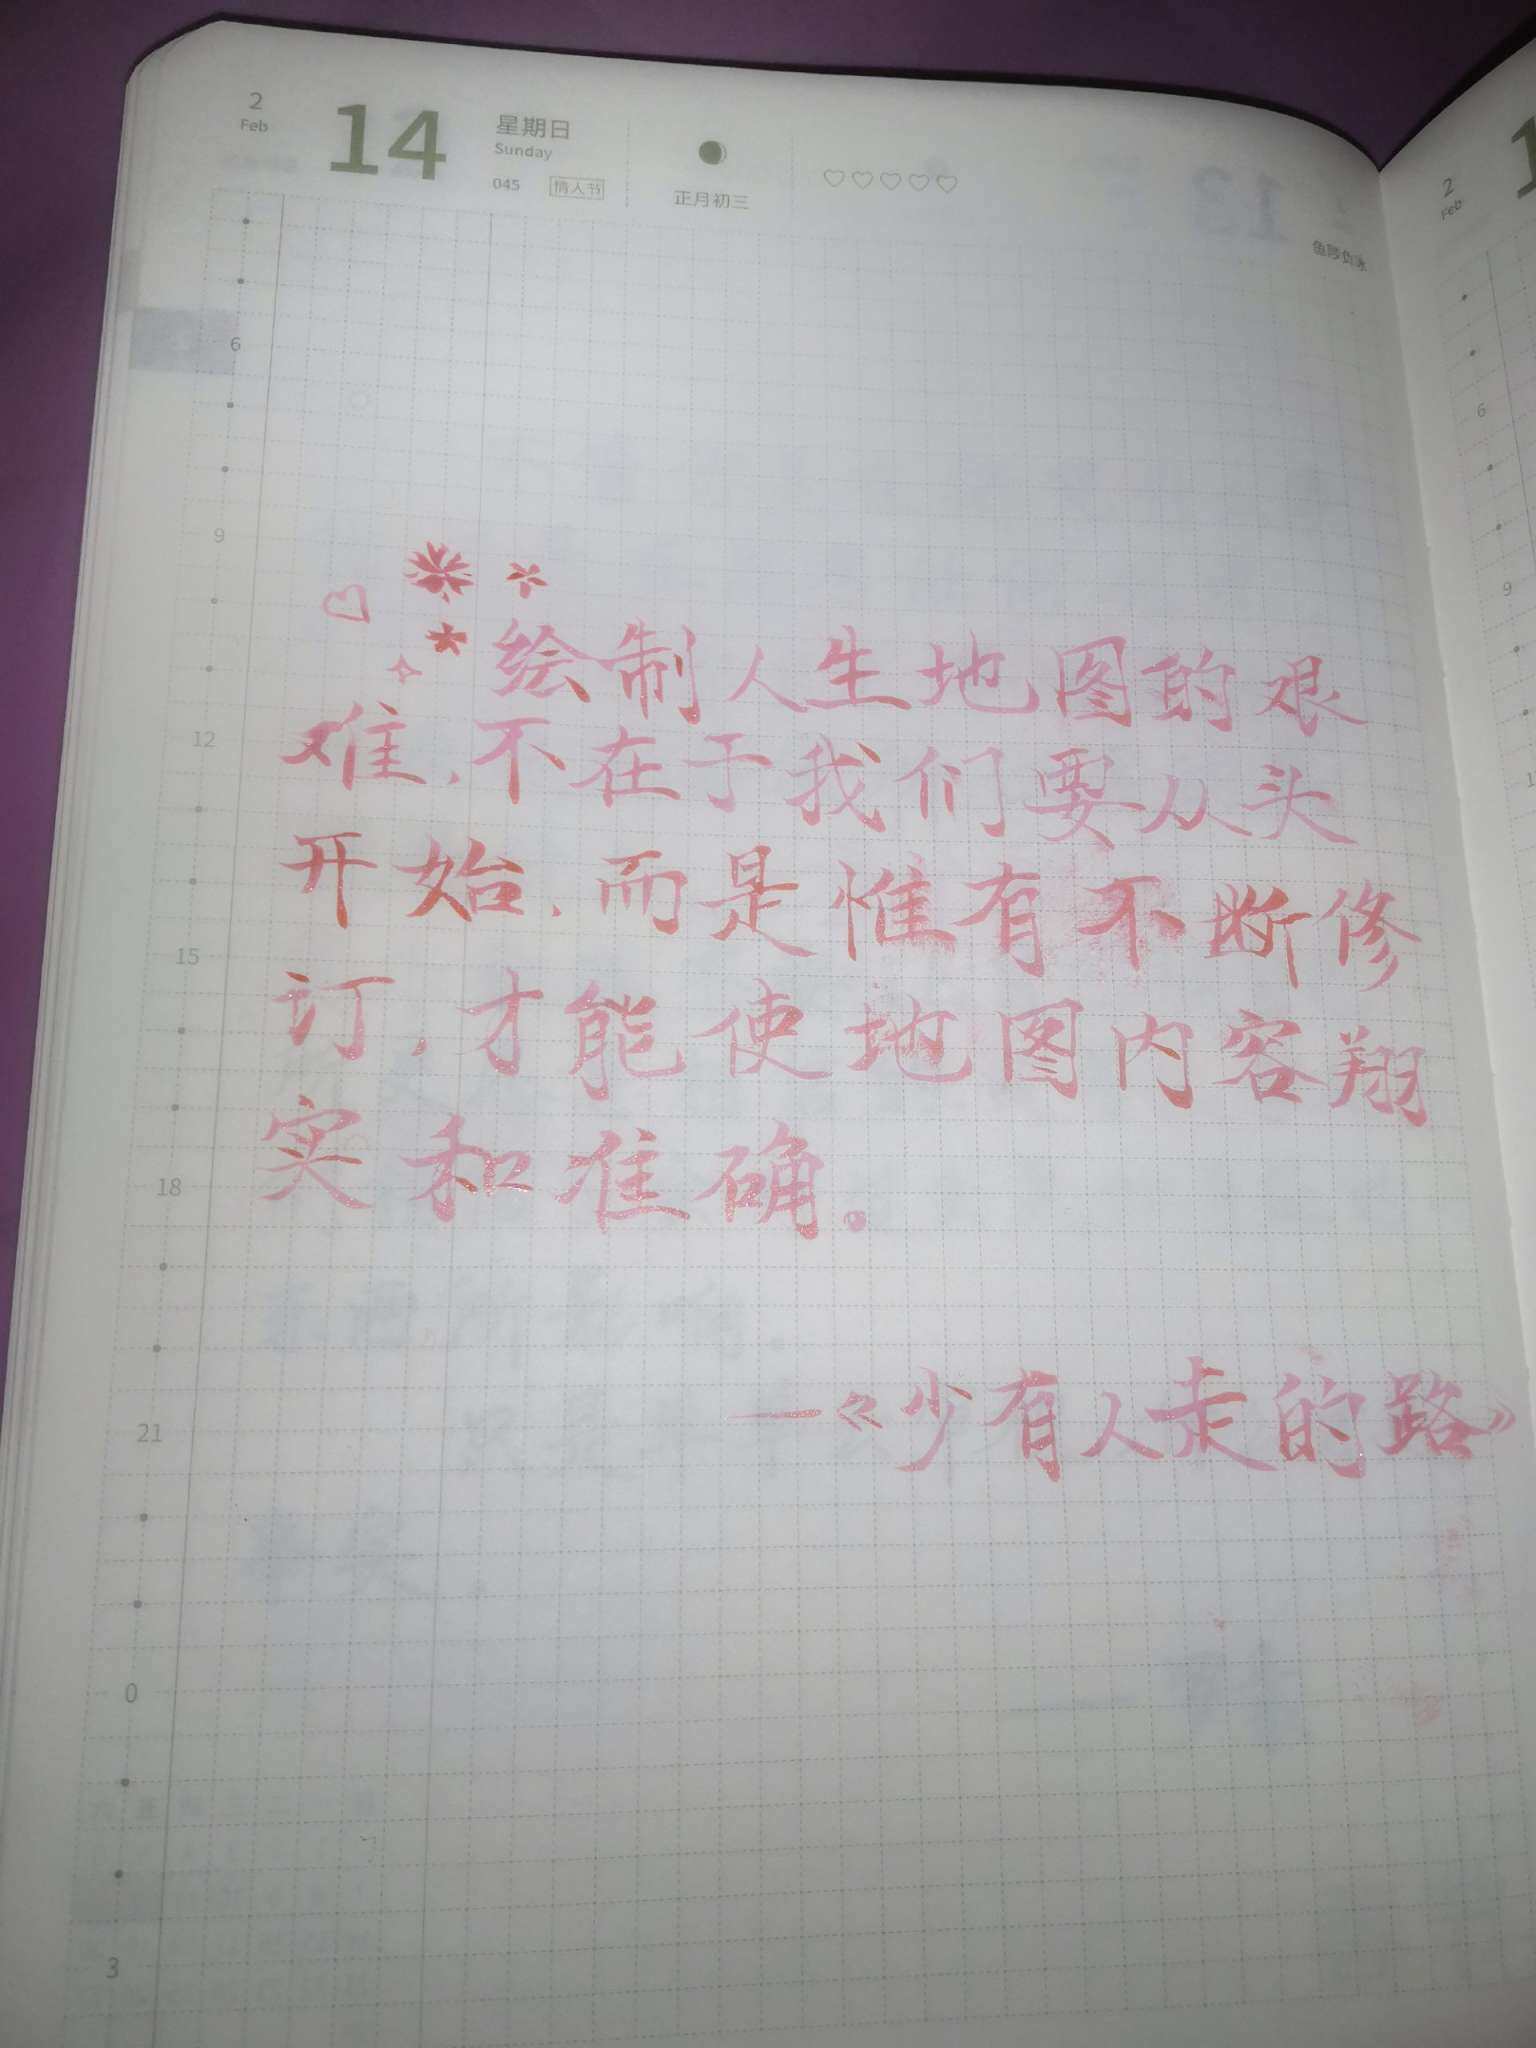 2
Feb
14
星期日
Sunday
045 情人节
正月初三
2
Feb
6
9
12
15
18
21
0
3
绘制人生地图的艰
难,不在于我们要从头
开始,而是惟有不断修
订,才能使地图内容翔
实和准确。
—《少有人走的路》
6
9